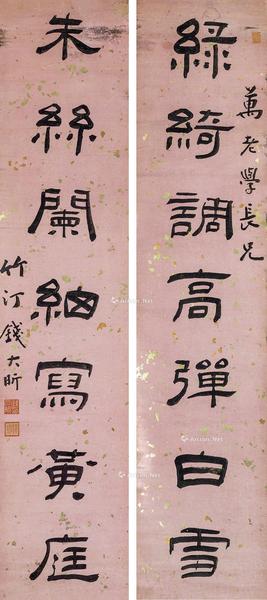 萬老學長兄
綠綺調高彈白雪
朱絲闌細寫黃庭
竹汀錢大昕